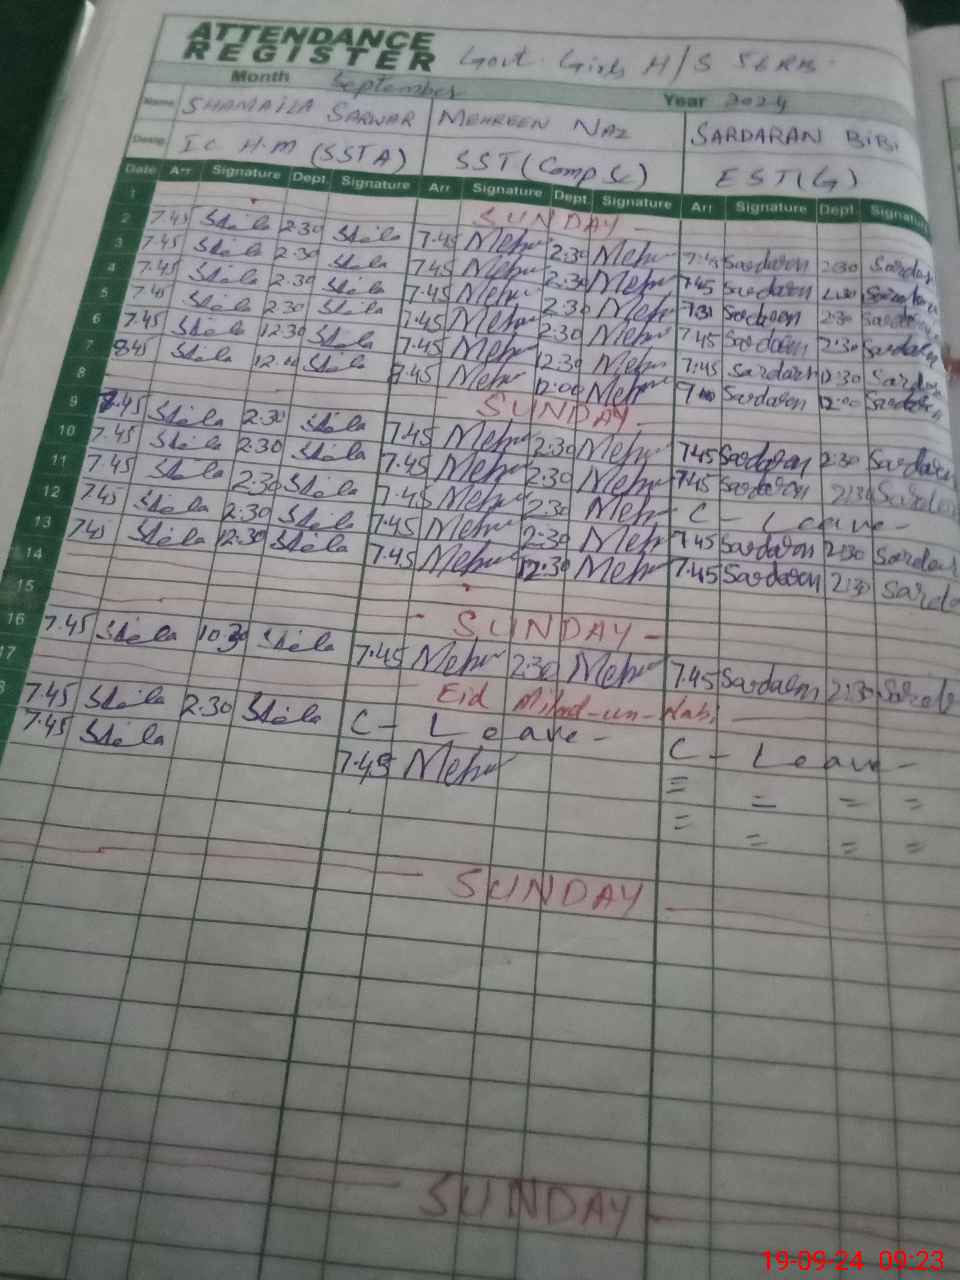 ATTENDANCE
REGISTER Govt. Girls H/S 56 RB.
Month September Year 2024
Name SHAMAILA SARWAR MEHREEN NAZ SARDARAN BiBi
Desig. I C H.M (SSTA) SST (Comp Sc) EST (G)
Date Arr Signature Dept. Signature Arr Signature Dept. Signature Arr Signature Dept. Signature
1 SUNDAY
2 7.45 2:30 7.45 Mehr 2:30 Mehr 7:45 Sardaran 2:30
3 7.45 2:30 7.45 Mehr 2:30 Mehr 7.45 Sardaran 2:30
4 7.45 2:30 7.45 Mehr 2:30 Mehr 7:31 Sardaran 2:30
5 7.45 2:30 7.45 Mehr 2:30 Mehr 7.45 Sardaran 2:30
6 7.45 12:30 7.45 Mehr 12:30 Mehr 7:45 Sardaran 12:30
7 8.45 7.45 Mehr 12:00 Mehr Sardaran 12:00
8 SUNDAY
9 7.45 2:30 7.45 Mehr 2:30 Mehr 7.45 Sardaran 2:30 Sardaran
10 7.45 2:30 7.45 Mehr 2:30 Mehr 7.45 Sardaran 2:30
11 7.45 2:30 7.45 Mehr 2:30 Mehr C - Leave -
12 7.45 2:30 7.45 Mehr 2:30 Mehr 7.45 Sardaran 2:30
13 7.45 12:30 7.45 Mehr 12:30 Mehr 7.45 Sardaran 2:30
14
15 - SUNDAY -
16 7.45 10:30 7.45 Mehr 2:30 Mehr 7.45 Sardaran 2:30
17 Eid Milad-un-Nabi
8 7.45 2.30 C - Leave - C - Leave -
7.45 7.45 Mehr = = = =
= = = =
SUNDAY
SUNDAY
19-09-24 09:23